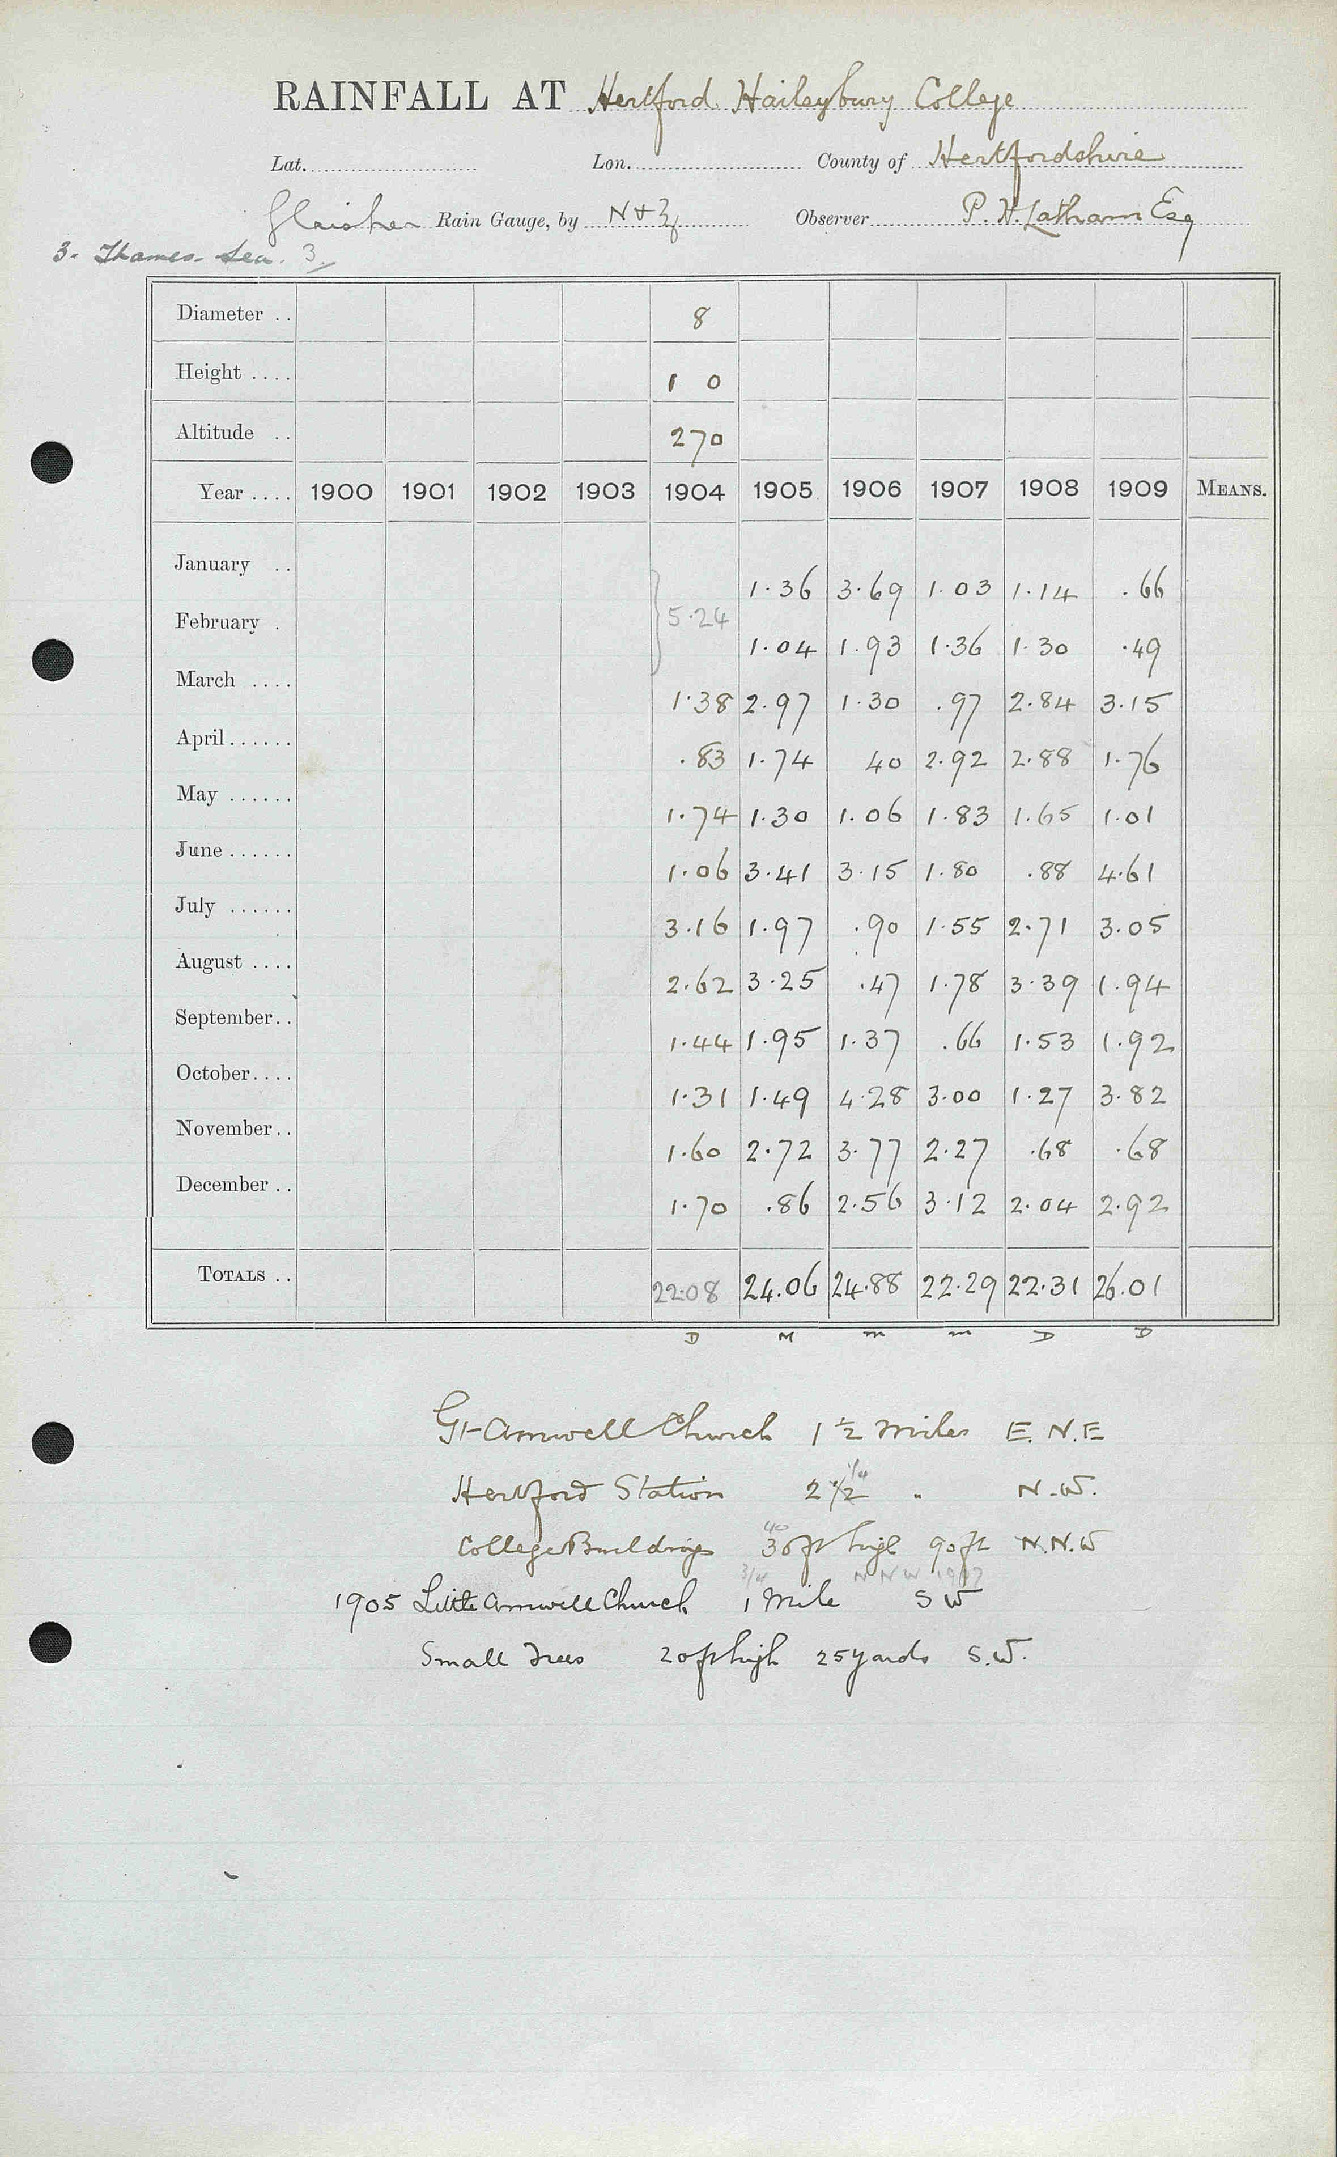 RAINFALL AT Hertford Haileybury College
Lat. Lon. County of Hertfordshire
Glaisher Rain Gauge, by N & Z Observer P. H. Latham Esq
3. Thames. Lea. 3
Diameter .. 8
Height .... 1 0
Altitude .. 270
Year .... 1900 1901 1902 1903 1904 1905 1906 1907 1908 1909 MEANS.
January .. 1.36 3.69 1.03 1.14 .66
5.24
February . 1.04 1.93 1.36 1.30 .49
March .... 1.38 2.97 1.30 .97 2.84 3.15
April ...... .83 1.74 40 2.92 2.88 1.76
May ...... 1.74 1.30 1.06 1.83 1.65 1.01
June ...... 1.06 3.41 3.15 1.80 .88 4.61
July ...... 3.16 1.97 .90 1.55 2.71 3.05
August .... 2.62 3.25 .47 1.78 3.39 1.94
September.. 1.44 1.95 1.37 .66 1.53 1.92
October.... 1.31 1.49 4.28 3.00 1.27 3.82
November.. 1.60 2.72 3.77 2.27 .68 .68
December .. 1.70 .86 2.56 3.12 2.04 2.92
TOTALS .. 22.08 24.06 24.88 22.29 22.31 26.01
D M m m D D
Gt Amwell Church 1 1/2 miles E.N.E
1/4
Hertford Station 2 1/2 " N.W.
40
College Buildings 30ft high 90ft N.N.W
3/4 N N W 1907
1905 Little Amwell Church 1 Mile S W
Small Trees 20ft high 25 yards S.W.